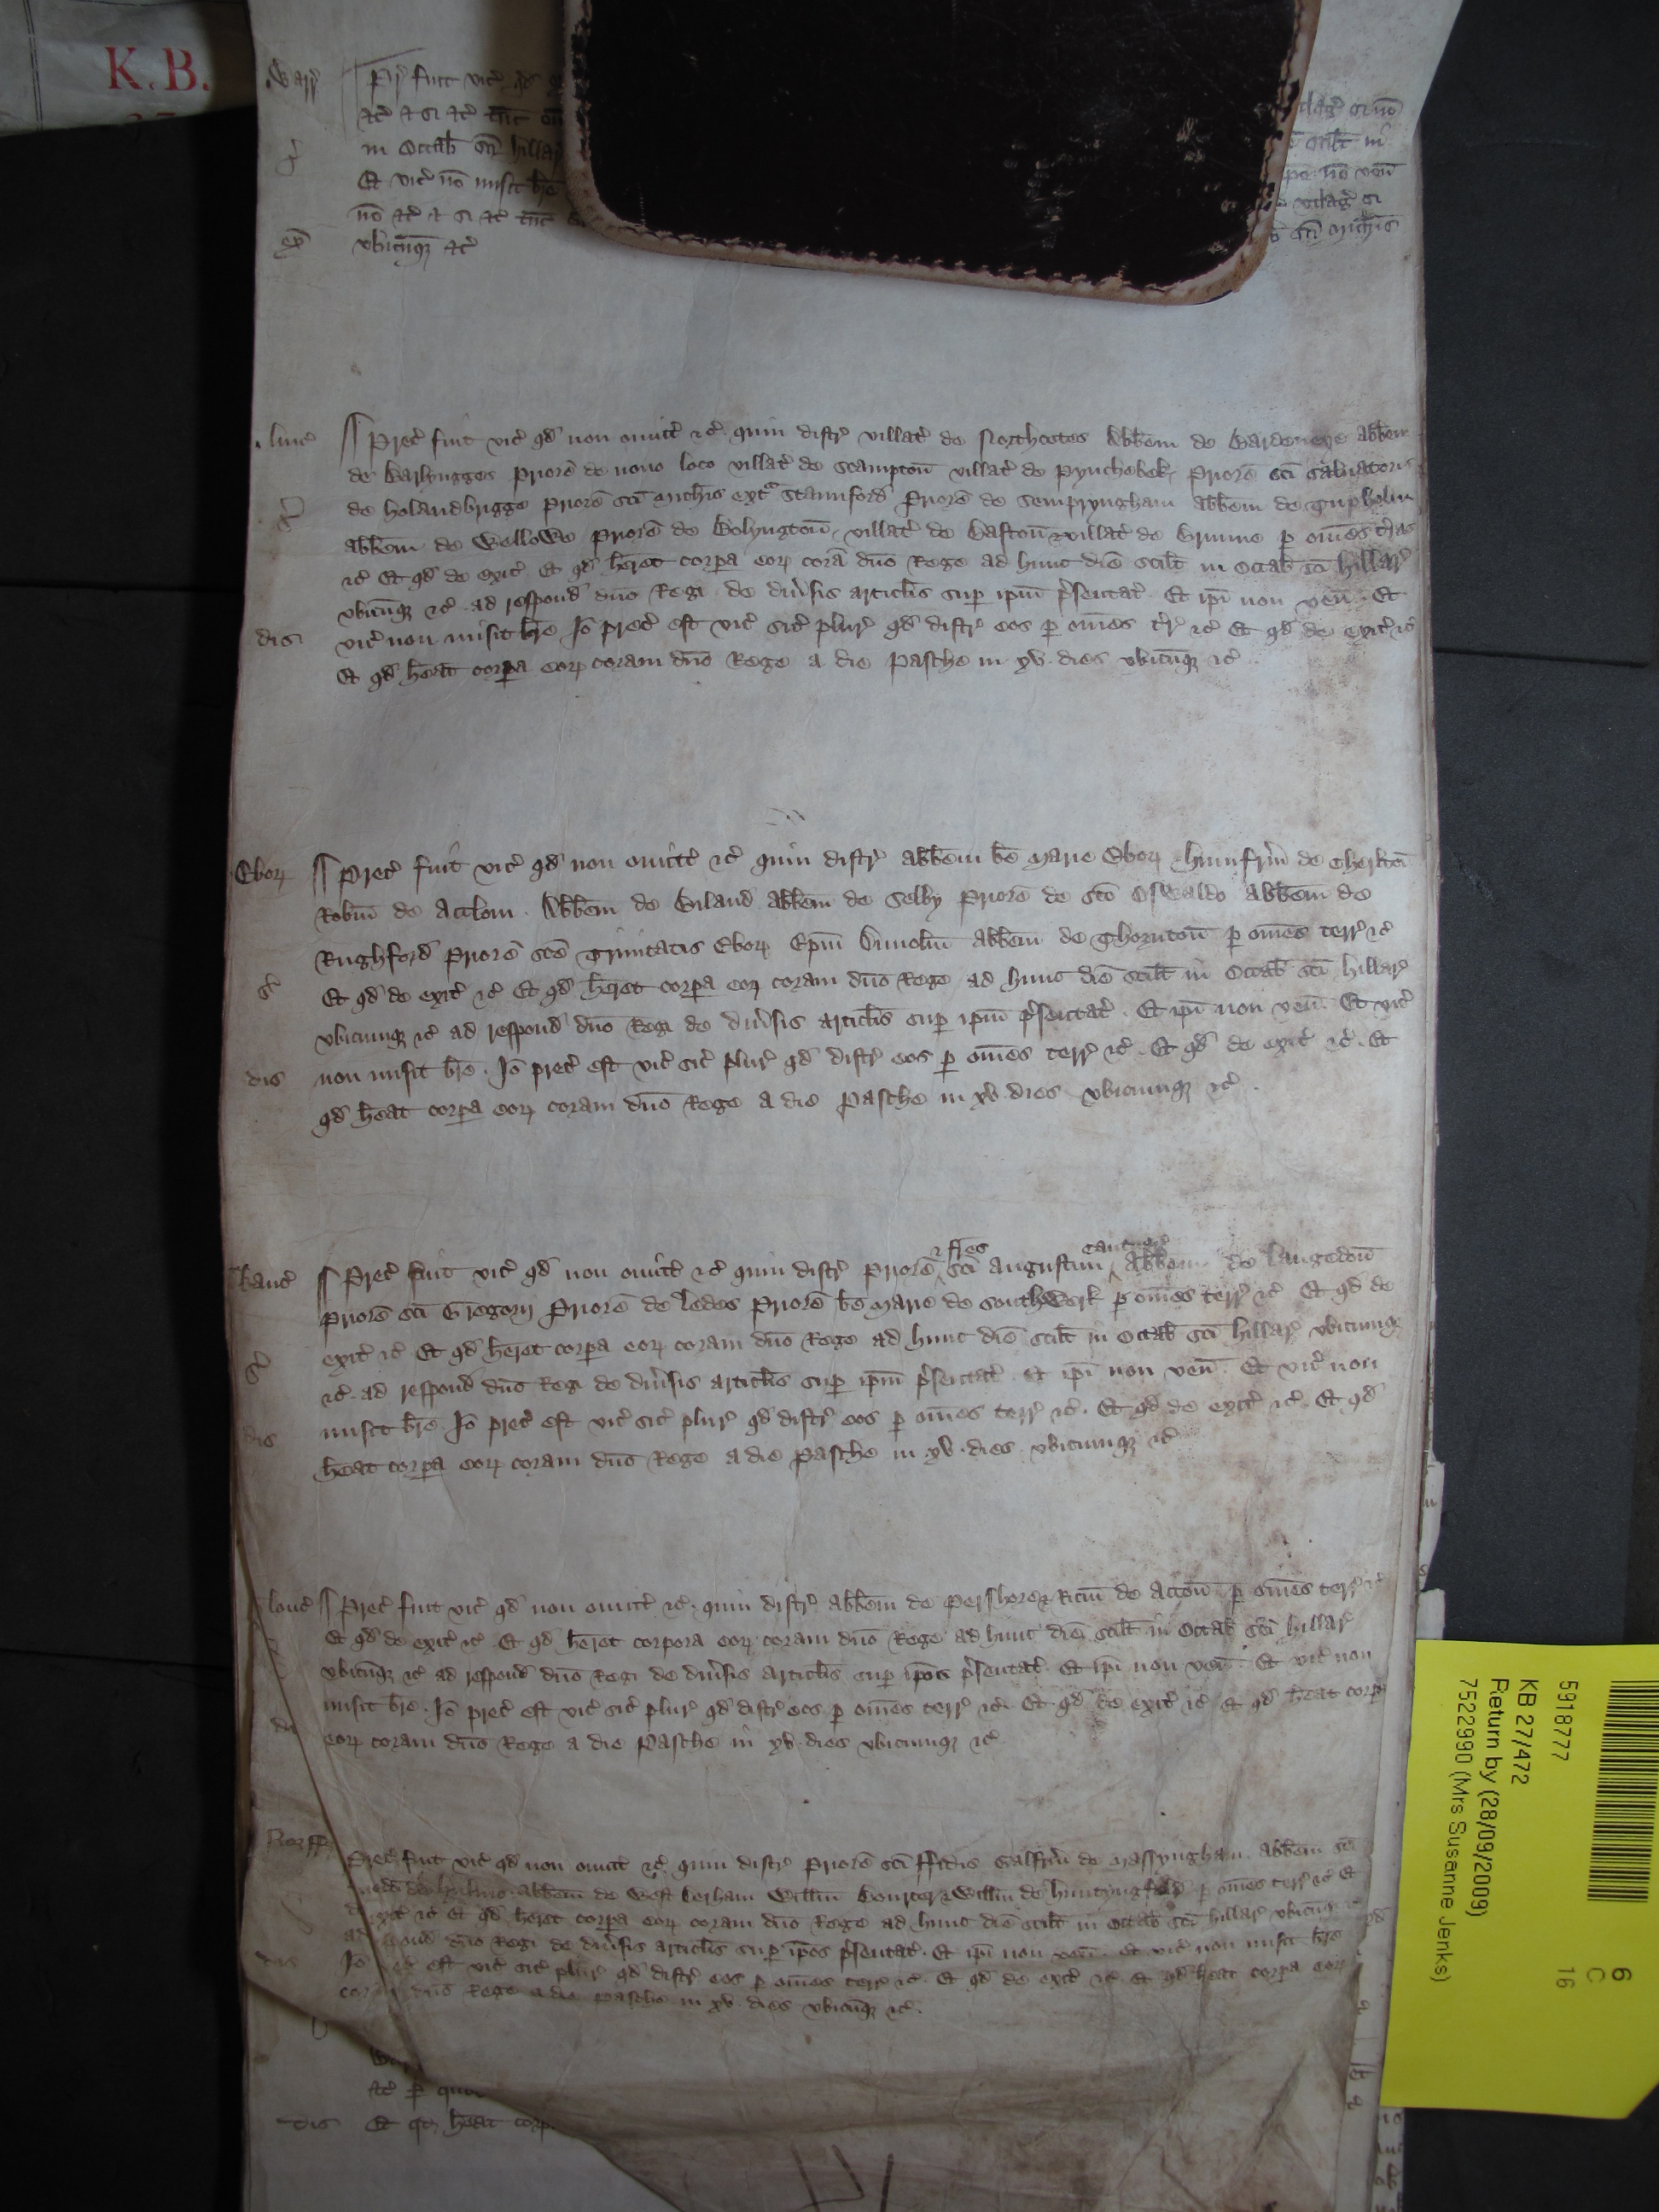 K.B.
Warr̄ Pr̄ fuit vic̄ qd̄
⁊c̄ ⁊ si ⁊c̄ tūc
utlaḡ si nō
in Octab̄ sc̄i hillar̄
scilt̄ in
Et vic̄ nō misit br̄e
nō ven̄
nō ⁊c̄ ⁊ si ⁊c̄ tūc
utlaḡ si
ex̄ ubicūq̢ ⁊c̄
sc̄i Mich̄is
linc̄ Prec̄ fuit vic̄ qd̄ non omitt̄ ⁊c̄ quin distr̄ villat̄ de Northcotes Abb̄em de Bardeneye abb̄em
de Barlyngges Priorē de nouo loco villat̄ de Scamptoū villat̄ de Pynchebek Priorē sc̄i saluatoris
de holandbrigge Priorē sc̄i Mich̄is extᵃ Staunford̄ Priorē de Sempryngham abb̄em de Tupholm
abb̄em de Wellowe Priorē de Bolyngtoū villat̄ de Bastoū ⁊ villat̄ de Brunne p om̄es t̄ras
⁊c̄ Et qd̄ de exit̄ Et qd̄ h̄eret corpa eoꝝ corā dn̄o Rege ad hunc diē scilt̄ in Octab̄ sc̄i hillar̄
ubicūq̢ ⁊c̄ ad respond̄ dn̄o Regi de diu̾sis articl̄is sup ip̄m p̄sentat̄ Et ip̄i non ven̄ Et
dis vic̄ non misit br̄e Iō prec̄ est vic̄ sic̄ plur̄ qd̄ distr̄ eos p om̄es t̄r̄ ⁊c̄ Et qd̄ de exit̄ ⁊c̄
Et qd̄ h̄eat corpa eoꝝ coram dn̄o Rege a die Pasche in xv dies ubicūq̢ ⁊c̄
Eboꝝ Prec̄ fuit vic̄ qd̄ non omitt̄ ⁊c̄ quin distr̄ abb̄em be̅ Marie Eboꝝ hunfrm̄ de Cherltoū
Rob̄m de Acclom Abb̄em de Biland abb̄em de Selby Priorē de sc̄o Oswaldo abb̄em de
Rughford̄ Priorē sc̄e Trinitatis Eboꝝ Ep̄m Dunolm̄ abb̄em de Thorntoū p om̄es terr̄ ⁊c̄
Et qd̄ de exit̄ ⁊c̄ Et qd̄ h̄eret corpa eoꝝ coram dn̄o Rege ad hunc diē scilt̄ in Octab̄ sc̄i hillar̄
ubicunq̢ ⁊c̄ ad respond̄ dn̄o Regi de diu̾sis articl̄is sup ip̄m p̄sentat̄ Et ip̄i non ven̄ Et vic̄
dis non misit br̄e Iō prec̄ est vic̄ sic̄ plur̄ qd̄ distr̄ eos p om̄es terr̄ ⁊c̄ Et qd̄ de exit̄ ⁊c̄ Et
qd̄ h̄eat corpa eoꝝ coram dn̄o Rege a die Pasche in xv dies ubicunq̢ ⁊c̄
⁊ fr̄es Cantuar̄
kanc̄ Prec̄ fuit vic̄ qd̄ non omitt̄ ⁊c̄ quin distr̄ Priorē sc̄i Augustini Abb̄em de langedoū
Priorē sc̄i Gregorij Priorē de ledes Priorē be̅ Marie de Southwerk p om̄es terr̄ ⁊c̄ Et qd̄ de
exit̄ ⁊c̄ Et qd̄ h̄eret corpa eoꝝ coram dn̄o Rege ad hunc diē scilt̄ in Octab̄ sc̄i hillar̄ ubicunq̢
⁊c̄ ad respond̄ dn̄o Regi de diu̾sis articl̄is sup ip̄m p̄sentat̄ Et ip̄i non ven̄ Et vic̄ non
dis misit br̄e Iō prec̄ est vic̄ sic̄ plur̄ qd̄ distr̄ eos p om̄es terr̄ ⁊c̄ Et qd̄ de exit̄ ⁊c̄ Et qd̄
h̄eat corpa eoꝝ coram dn̄o Rege a die Pasche in xv dies ubicunq̢ ⁊c̄
Prec̄ fuit vic̄ qd̄ non omitt̄ ⁊c̄ quin distr̄ abb̄em de Pershore ⁊ Ricm̄ de Actoū p om̄es terr̄ ⁊c̄
Et qd̄ de exit̄ ⁊c̄ Et qd̄ h̄eret corpora eoꝝ coram dn̄o Rege ad hunc diē scilt̄ in Octab̄ sc̄i hillar̄
ubicūq̢ ⁊c̄ ad respond̄ dn̄o Regi de diu̾sis articl̄is sup ip̄os p̄sentat̄ Et ip̄i non ven̄ Et vic̄ non
misit br̄e Iō prec̄ est vic̄ sic̄ plur̄ qd̄ distr̄ eos p om̄es terr̄ ⁊c̄ Et qd̄ de exit̄ ⁊c̄ Et qd̄ h̄eat corpa
eoꝝ coram dn̄o Rege a die Pasche in xv dies ubicunq̢ ⁊c̄
Norff Prec̄ fuit vic̄ qd̄ non omitt̄ ⁊c̄ quin distr̄ Priorē sc̄i Galfrm̄ de Massyngham abb̄em sc̄i
de hulmo abb̄em de West Derham Willm̄ Willm̄ de huntyngfeld p om̄es terr̄ ⁊c̄ Et
⁊c̄ Et qd̄ h̄eret corpa eoꝝ coram dn̄o Rege ad hunc diē scilt̄ in Octab̄ sc̄i hillar̄ ubicūq̢
dn̄o Regi de diu̾sis articl̄is sup ip̄os p̄sentat̄ Et ip̄i non ven̄ Et vic̄ non misit br̄e
Iō est vic̄ sic̄ plur̄ qd̄ distr̄ eos p om̄es terr̄ ⁊c̄ Et qd̄ de exit̄ ⁊c̄ Et qd̄ h̄eat corpa eoꝝ
dn̄o Rege a die Pasche in xv dies ubicūq̢ ⁊c̄
⁊c̄ p
dis Et h̄eat
5918777
KB 27/472
Return by (28/09/2009)
7522990 (Mrs Susanne Jenks)
6
C
16